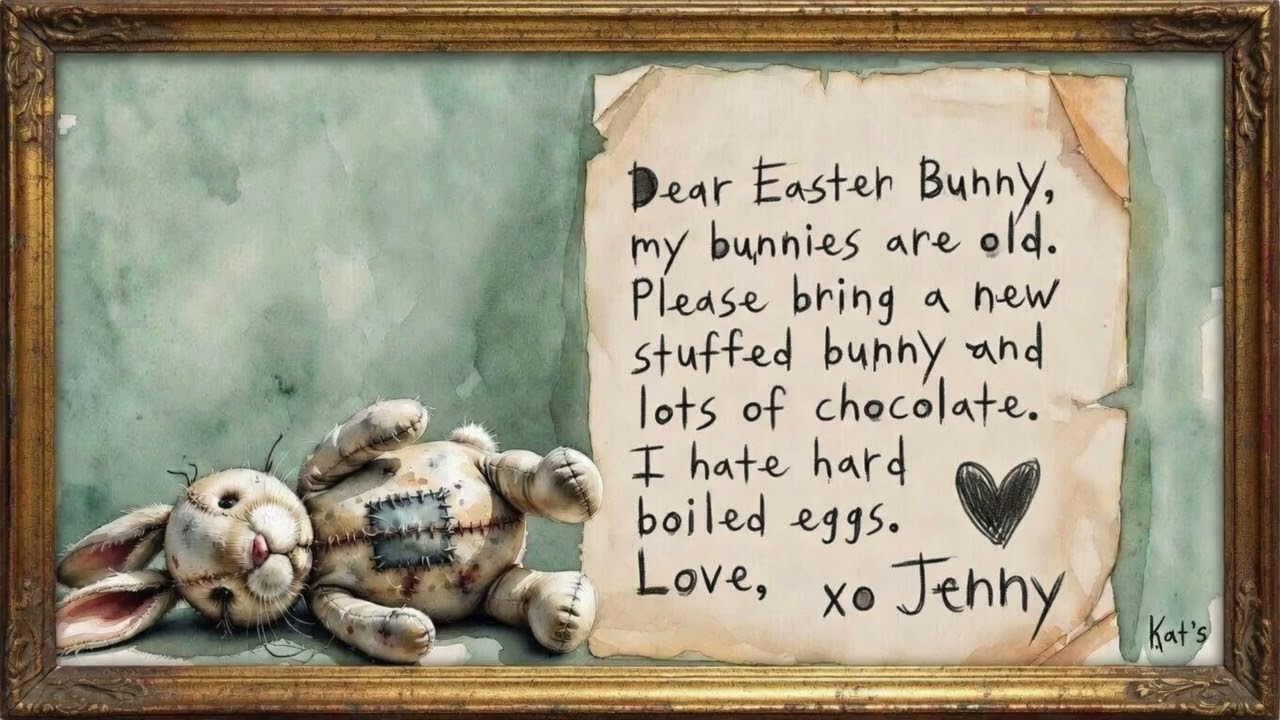 Dear Easter Bunny,
my bunnies are old.
Please bring a new
stuffed bunny and
lots of chocolate.
I hate hard
boiled eggs.
Love,
xo Jenny
Kat's